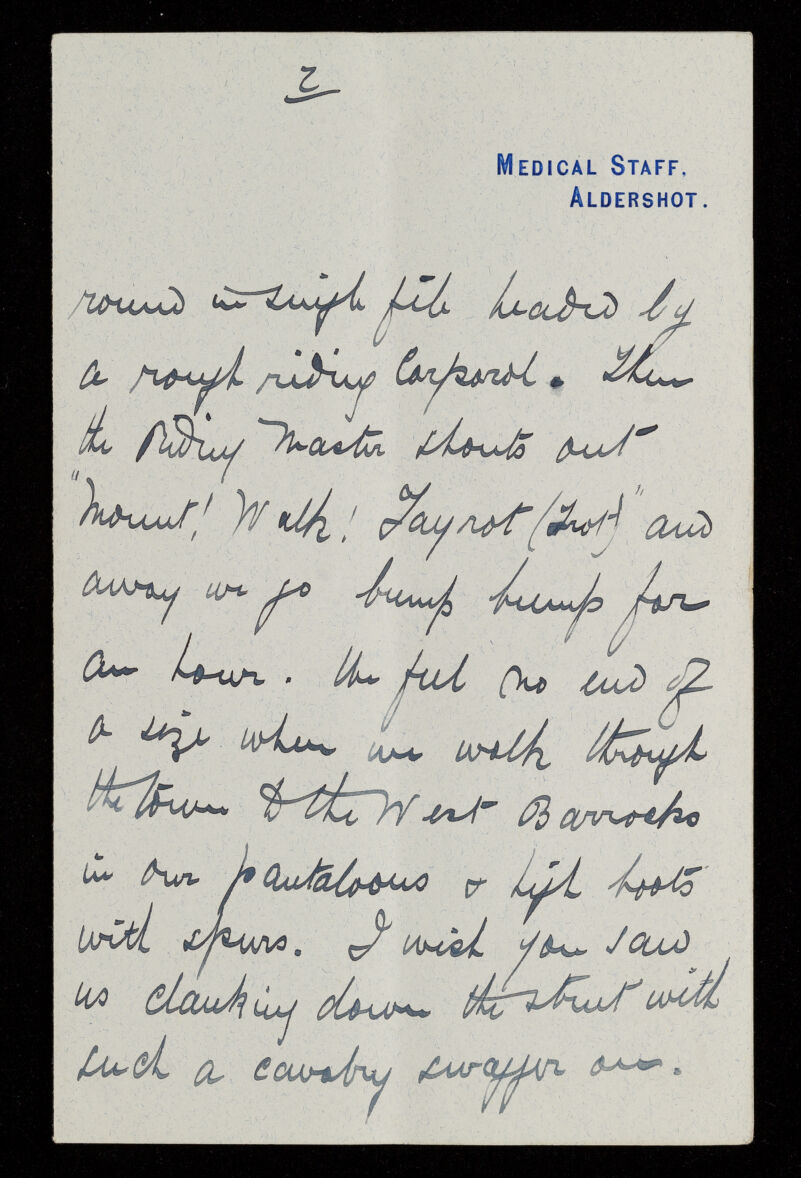 2
MEDICAL STAFF.
ALDERSHOT.
round in single file headed by
a rough riding Corporal. Then
the Riding Master shouts out
"Mount! Walk! Tayrot (Trot)" and
away we go bump bump for
an hour. We feel no end of
a size when we walk through
the town to the West Barracks
in our pantaloons & high boots
with spurs. I wish you saw
us clanking down the street with
such a cavalry swagger on.